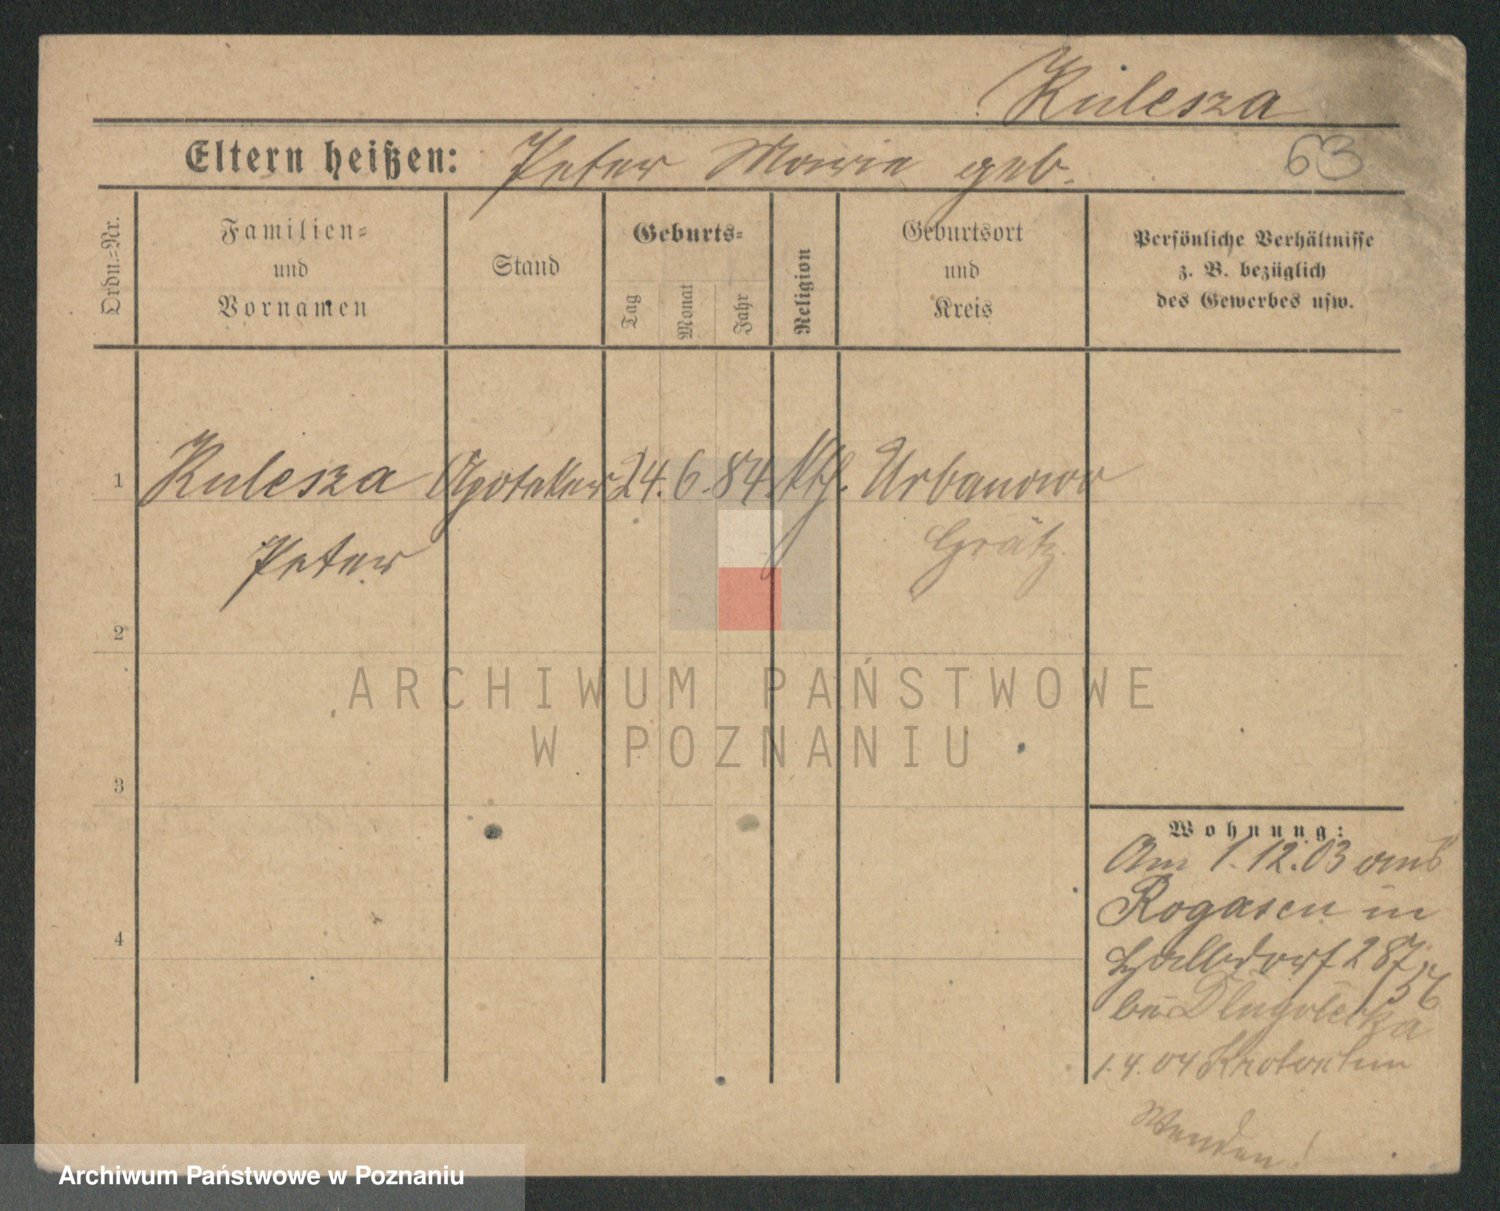 Kulesza
Eltern heißen: Peter Marie geb.
63
Ordn.=Nr.
Familien=
und
Vornamen
Stand
Geburts=
Tag
Monat
Jahr
Religion
Geburtsort
und
Kreis
Persönliche Verhältnisse
z. B. bezüglich
des Gewerbes usw.
1 Kulesza Apoteker 24. 6. 84. kth. Urbanowo
Peter Grätz
2
3
4
Wohnung:
Am 1.12.03 aus
Rogasen in
Halbdorf 287
bei
1.4.04 Krotoschin
Wenden!
ARCHIWUM PAŃSTWOWE
W POZNANIU
Archiwum Państwowe w Poznaniu